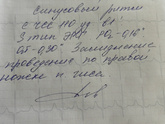 Синусовый ритм
с ЧСС 110 уд
3 тип ЭКГ PQ-016"
Замедление
проведения по правой
ножке п. Гиса